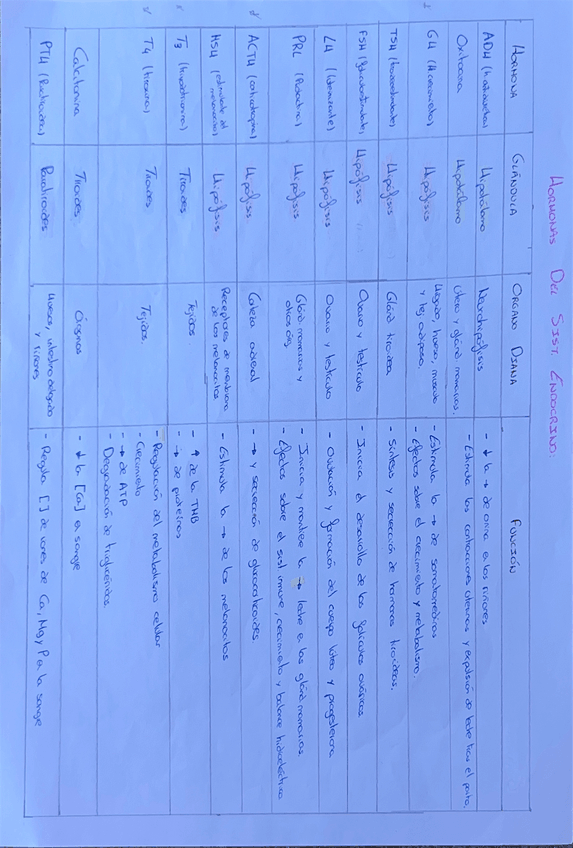 HORMONAS DEL SIST. ENDOCRINO:
HORMONA GLÁNDULA ORGANO DIANA FUNCIÓN
ADH (Antidiurética) Hipotálamo Neurohipófisis - ↓ la → de orina en los riñones
Oxitocina Hipotálamo Útero y glánd mamarias. - Estimula las contracciones uterinas y expulsión de leche tras el parto.
GH (H crecimiento) Hipófisis Hígado, hueso, músculo - Estimula la → de somatomedinas
y tej. adiposo. - Efectos sobre el crecimiento y metabolismo.
TSH (tirooestimulante) Hipófisis Gland tiroidea - Síntesis y secreción de hormonas tiroideas.
FSH (foliculoestimulante) Hipófisis Ovario y testículo - Inicia el desarrollo de los folículos ováricos
LH (luteinizante) Hipófisis Ovario y testículo - Ovulación y formación del cuerpo lúteo y progesterona
PRL (Prolactina) Hipófisis Gland mamarias y - Inicia y mantiene la → leche en las glánd mamarias
otros órg. - Efectos sobre el sist inmune, crecimiento y balance hidroeléctrico
ACTH (corticotropina) Hipófisis Corteza adrenal - → y secreción de glucocorticoides
HSH (estimulante del Hipófisis Receptores de membrana - Estimula la → de los melanocitos
melanocitos) de los melanocitos
T3 (triyodotironina) Tiroides Tejidos - ↑ de la TMB
- → de proteínas
T4 (tiroxina) Tiroides Tejidos - Regulación del metabolismo celular
- Crecimiento
- → de ATP
- Degradación de triglicéridos.
Calcitonina Tiroides. Órganos - ↓ la [Ca] en sangre
PTH (Paratiroidea) Paratiroides Huesos, intestino delgado - Regula [ ] de iones de Ca, Mg y P en la sangre
y riñones